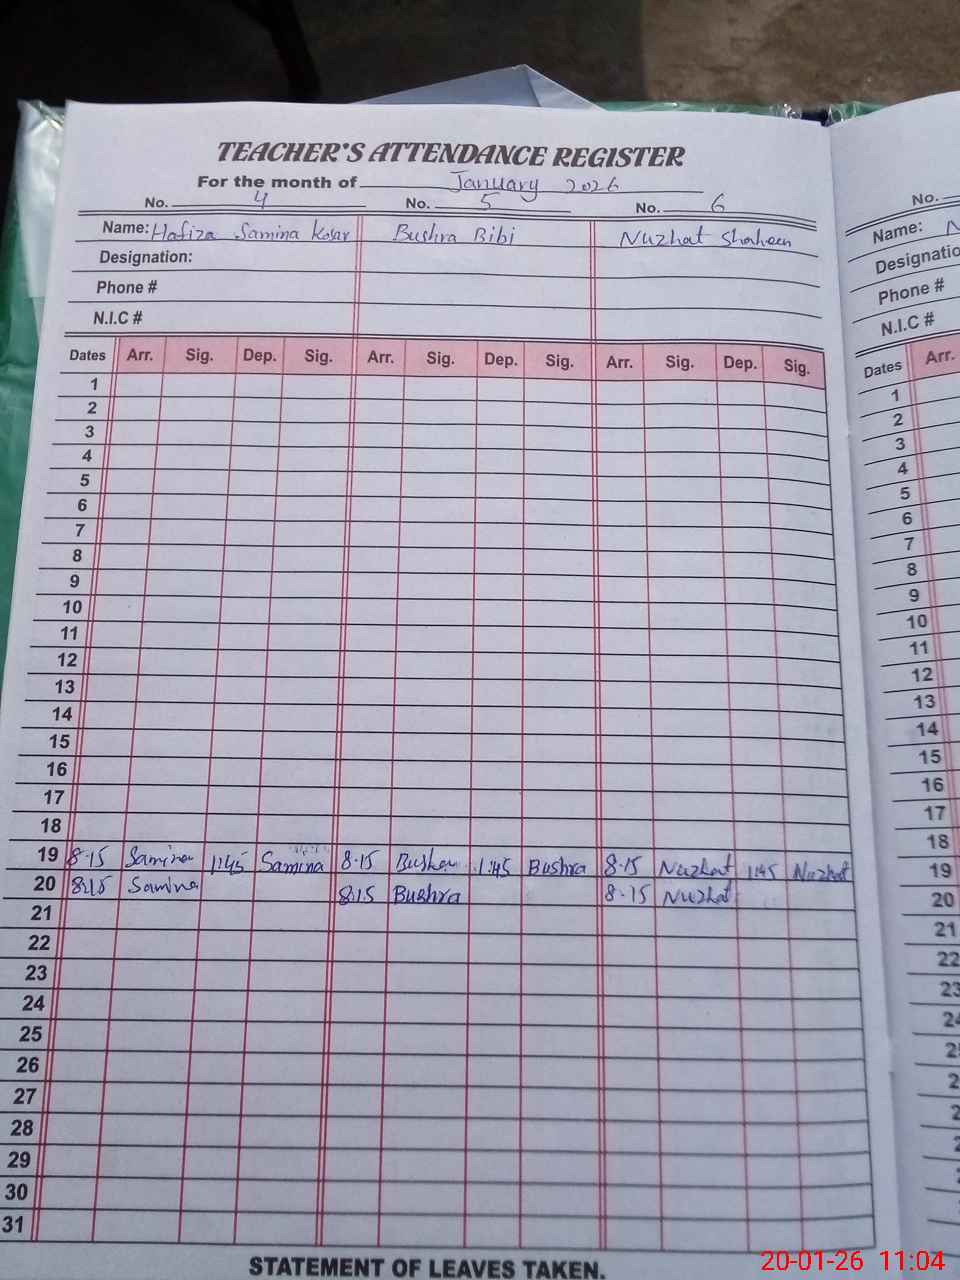 TEACHER'S ATTENDANCE REGISTER
For the month of January 2026
No. 4 No. 5 No. 6
Name: Hafiza Samina Kosar Bushra Bibi Nuzhat Shaheen
Designation:
Phone #
N.I.C #
Dates Arr. Sig. Dep. Sig. Arr. Sig. Dep. Sig. Arr. Sig. Dep. Sig.
1
2
3
4
5
6
7
8
9
10
11
12
13
14
15
16
17
18
19 8.15 Samina 1:45 Samina 8.15 Bushra 1:45 Bushra 8.15 Nuzhat 1:45 Nuzhat
20 8:15 Samina 8:15 Bushra 8.15 Nuzhat
21
22
23
24
25
26
27
28
29
30
31
STATEMENT OF LEAVES TAKEN.
No.
Name:
Designatio
Phone #
N.I.C #
Dates Arr.
1
2
3
4
5
6
7
8
9
10
11
12
13
14
15
16
17
18
19
20
21
22
23
24
20-01-26 11:04